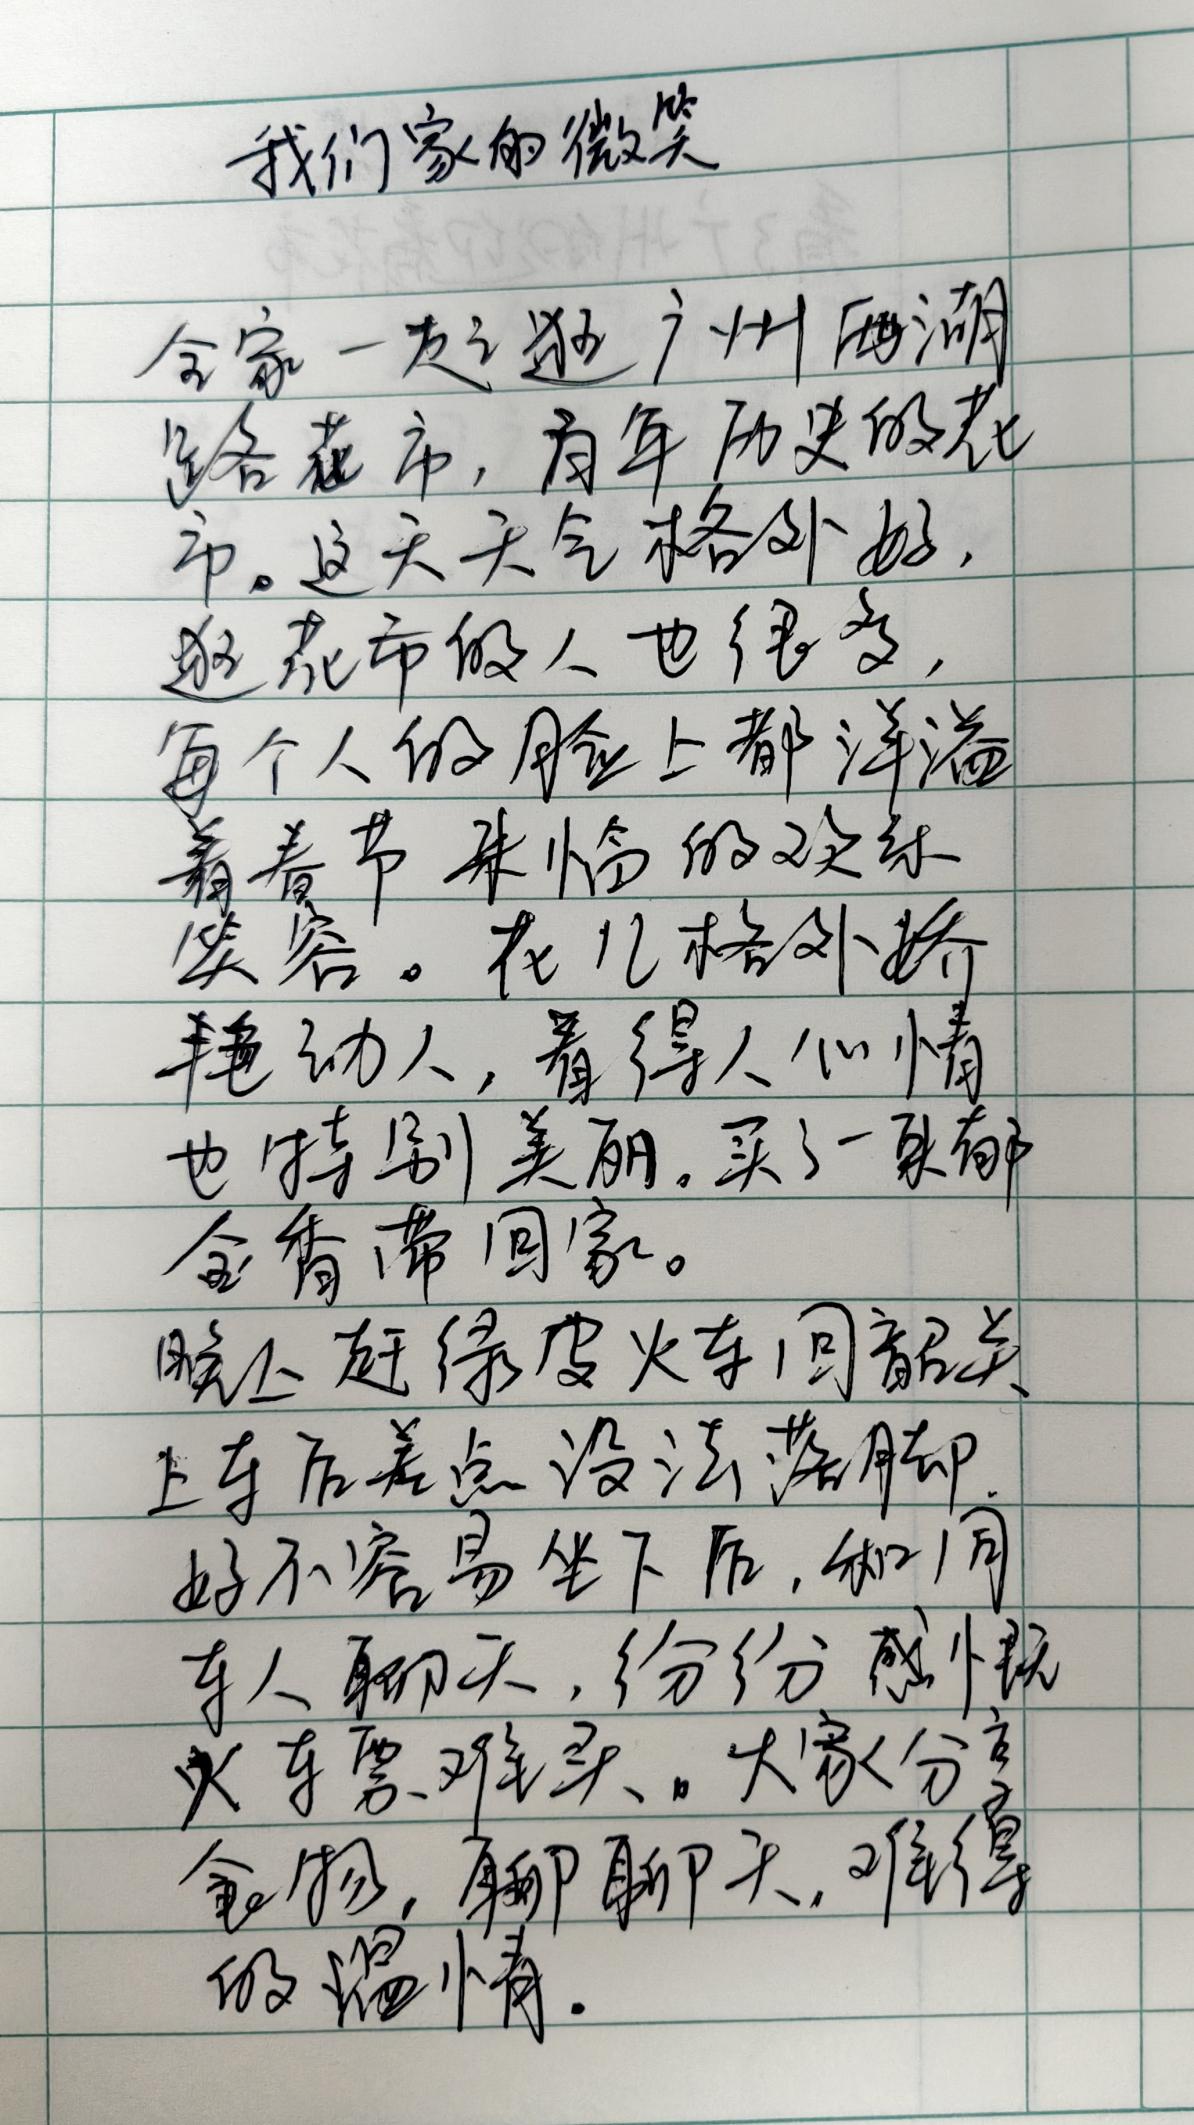 我们家的微笑
全家一起逛广州西湖
路花市，有年历史的花
市。这天天气格外好，
逛花市的人也很多，
每个人的脸上都洋溢
着春节来临的欢乐
笑容。花儿格外娇
艳动人，看得人心情
也特别美丽。买了一束郁
金香带回家。
晚上赶绿皮火车回韶关、
上车后差点没法落脚．
好不容易坐下后，和同
车人聊天，纷纷感慨
火车票、难买、。大家分享
食物，聊聊天，难得
的温情．